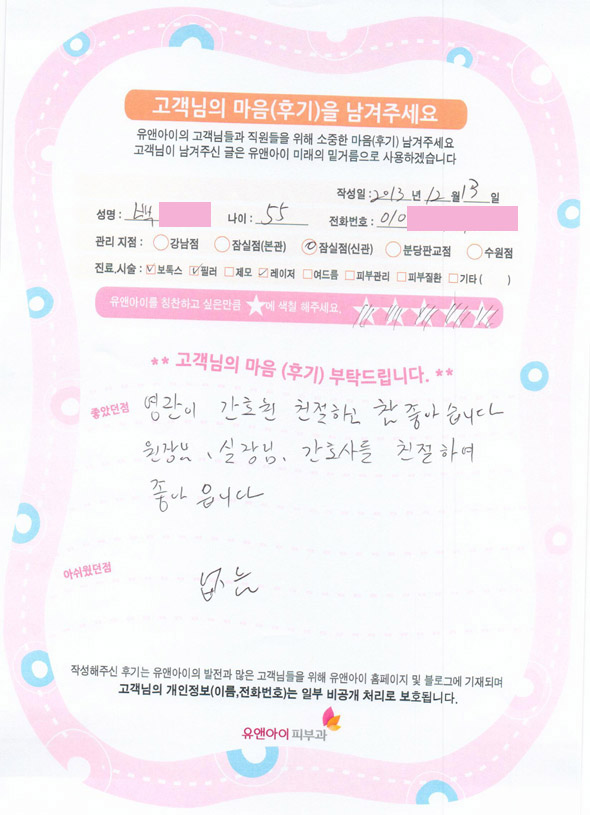 고객님의 마음(후기)을 남겨주세요
유앤아이의 고객님들과 직원들을 위해 소중한 마음(후기) 남겨주세요
고객님이 남겨주신 글은 유앤아이 미래의 밑거름으로 사용하겠습니다
작성일 : 2013 년 12 월 13 일
성명 : 백 나이 : 55 전화번호 : 010
관리 지점 : 강남점 잠실점(본관) 잠실점(신관) 분당판교점 수원점
진료,시술 : 보톡스 필러 제모 레이저 여드름 피부관리 피부질환 기타 ( )
유앤아이를 칭찬하고 싶은만큼 ★에 색칠 해주세요.
** 고객님의 마음 (후기) 부탁드립니다. **
좋았던점 영란이 간호원 친절하고 참 좋아습니다
원장님, 실장님, 간호사들 친절하여
좋아읍니다
아쉬웠던점 없는
작성해주신 후기는 유앤아이의 발전과 많은 고객님들을 위해 유앤아이 홈페이지 및 블로그에 기재되며
고객님의 개인정보(이름,전화번호)는 일부 비공개 처리로 보호됩니다.
유앤아이 피부과